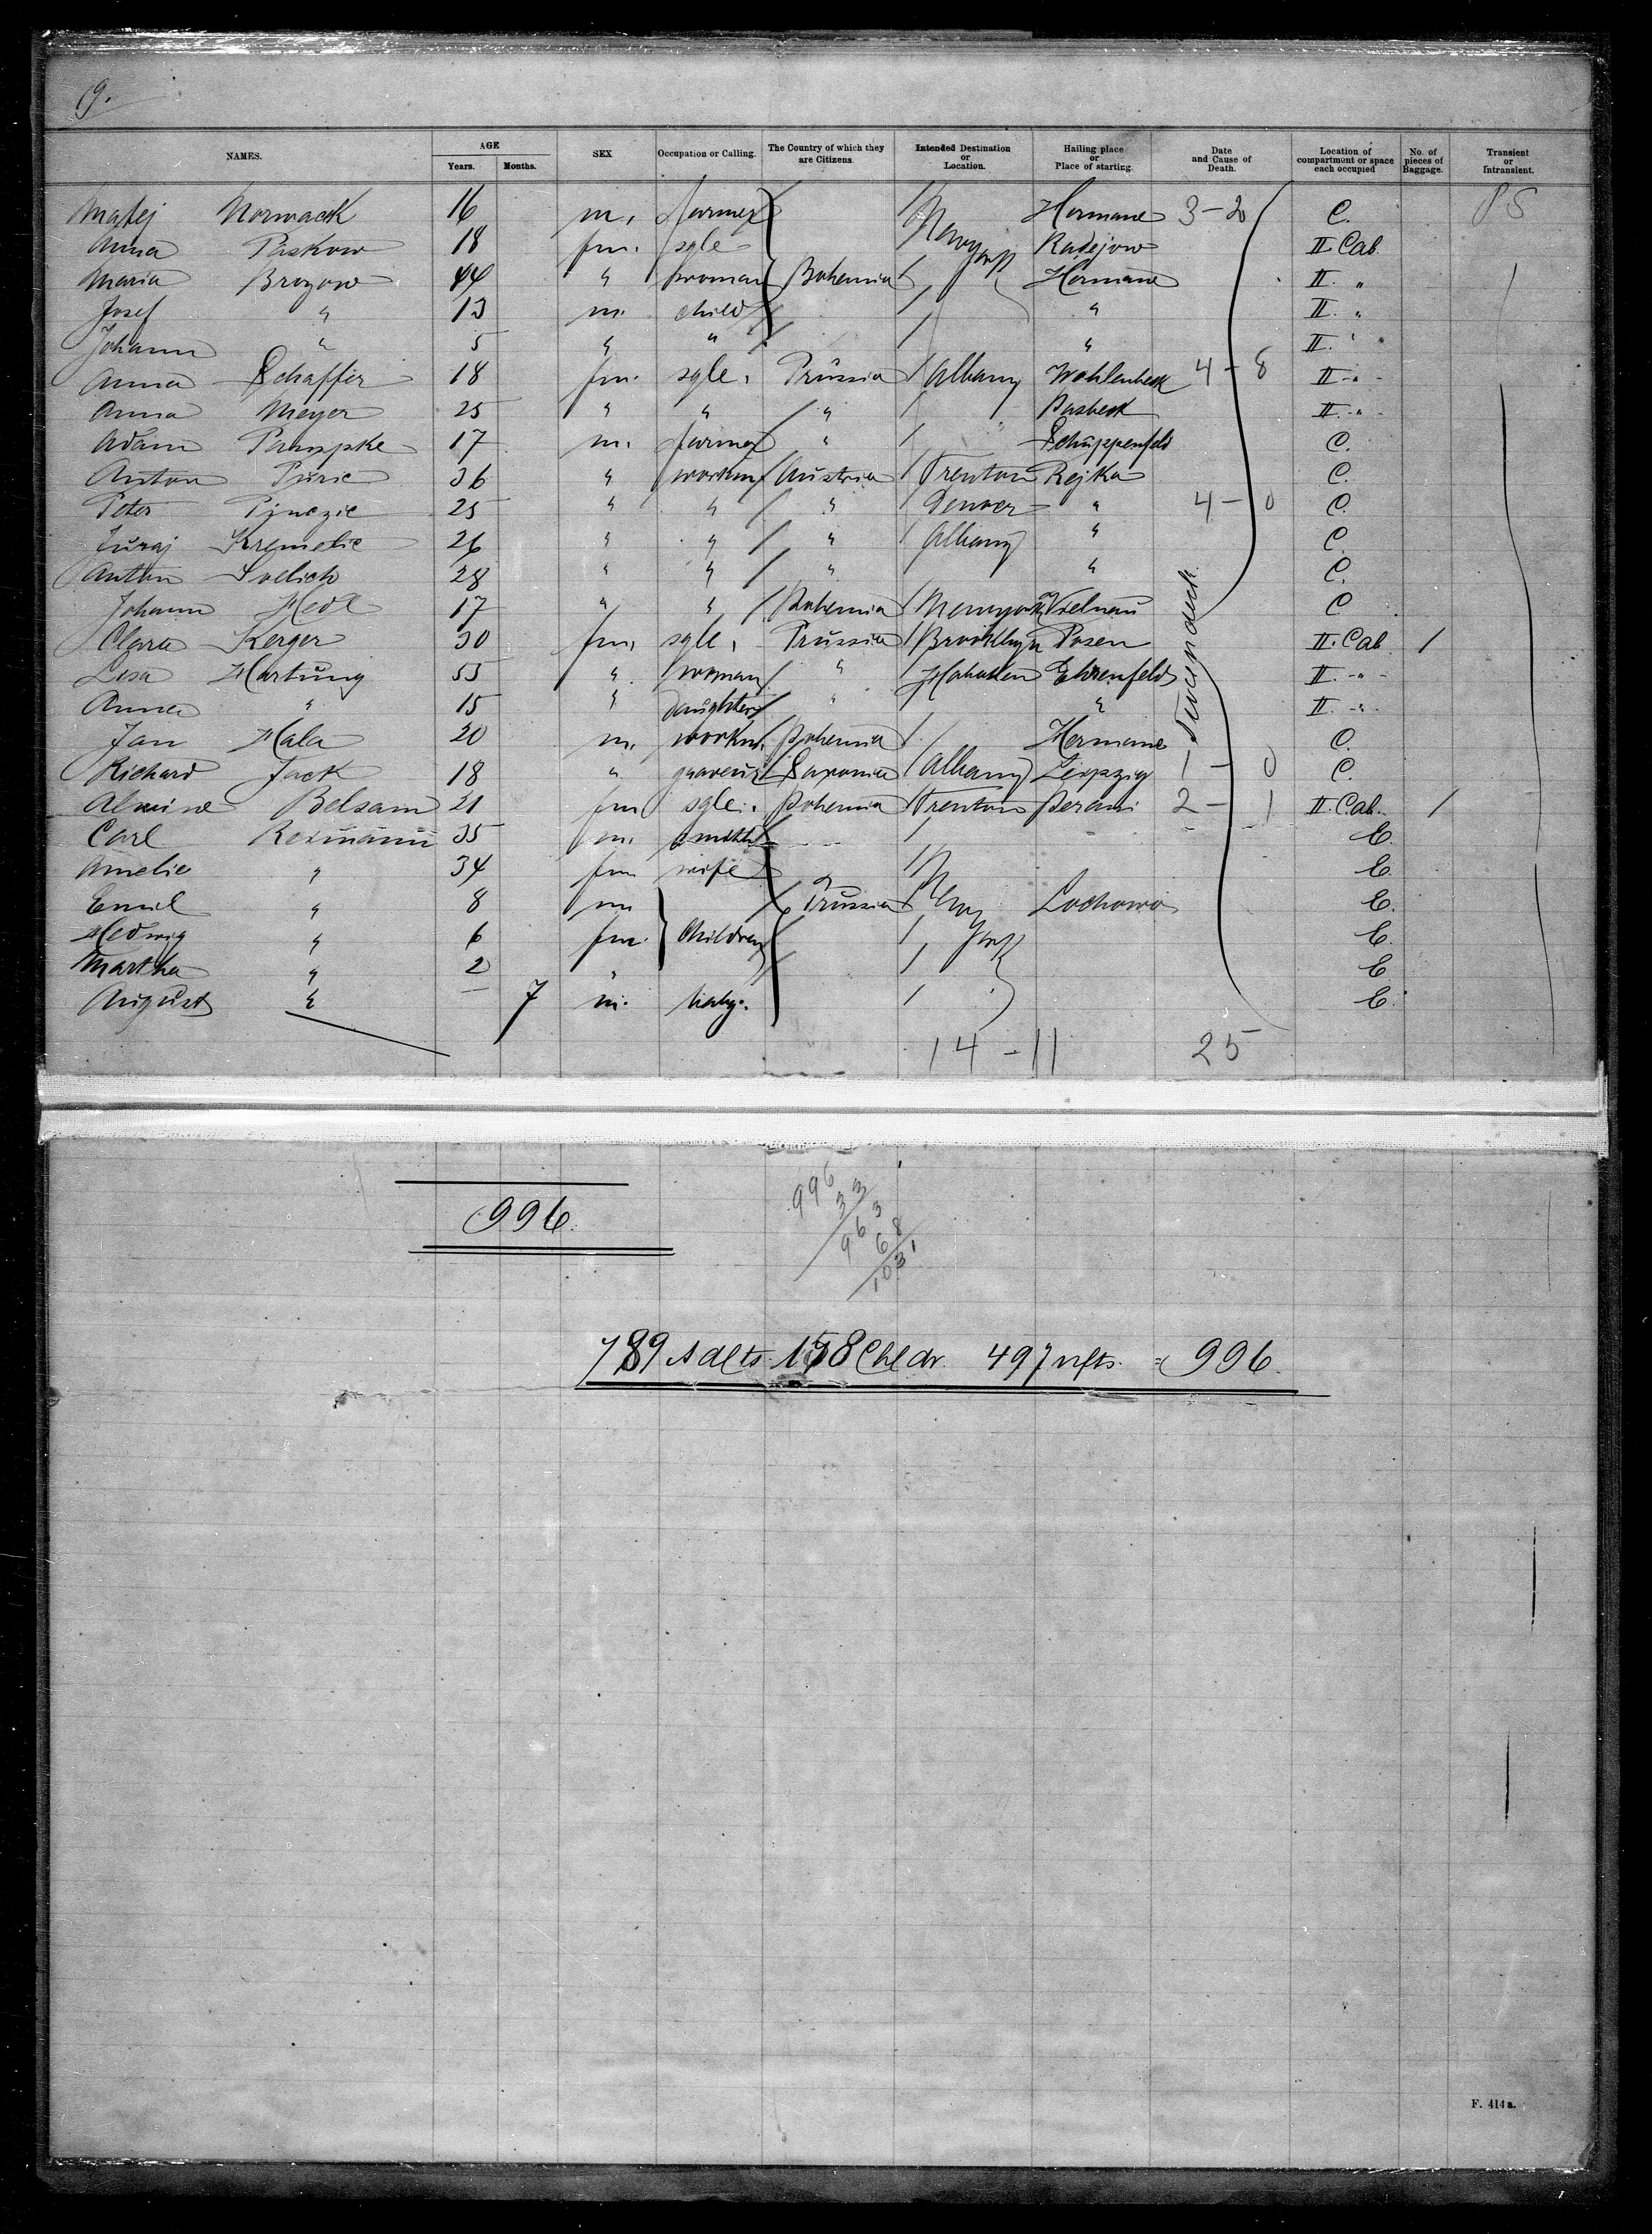 9.
NAMES. AGE Years. Months. SEX Occupation or Calling. The Country of which they are Citizens. Intended Destination or Location. Hailing place or Place of starting. Date and Cause of Death. Location of compartment or space each occupied No. of pieces of Baggage. Transient or Intransient.
Matej Norwack 16 m. farmer / Hermane 3-20 C. PS
Anna Paskow 18 fm. sgle Newyork Radejow II. Cab.
Maria Brozow 44 " woman Bohemia / Hermane II. "
Josef " 13 m. child / " II. "
Johann " 5 " " / " II. "
Anna Schaffer 18 fm. sgle. Prussia / Albany Wohlenbeck 4-8 II. " -
Anna Meyer 25 " " / " / " Dasbeck II. " -
Adam Pampke 17 m. farmer " / Schuppenfeld C.
Anton Puric 36 " workm / Austria / Trenton Rejka C.
Peter 25 " " / " / Denver " 4-0 C.
Juraj Kremelic 26 " " / " / Albany " C.
Anton 28 " " / " / " C.
Johann Hedl 17 " " / Bohemia / Newyork Vielnau C
Clara Kerger 30 fm. sgle. Prussia / Brooklyn Posen II. Cab 1
Lisa Hartung 55 " woman / " / Hoboken Ehrenfeld II. - " -
Anna " 15 " daughter / " " II. - " -
Jan Hala 20 m. workm. Bohemia / Hermane C.
Richard Jack 18 " Saxonia / Albany Leipzig 1-0 C.
Alwine Belsam 21 fm sgle. Bohemia / Trenton 2-1 II. Cab. 1
Tweendeck
Carl 35 m. smith / E.
Amelie " 34 fm wife / E.
Emil " 8 m Prussia / Newyork Lochowo E.
Hedwig " 6 fm. Children / E.
Martha " 2 " / E
August " — 7 m. baby. / E.
14-11 25
996.
996
33
963
68
1031
789 Adlts. 158 Chldr. 49 Infts. = 996.
F. 414 a.